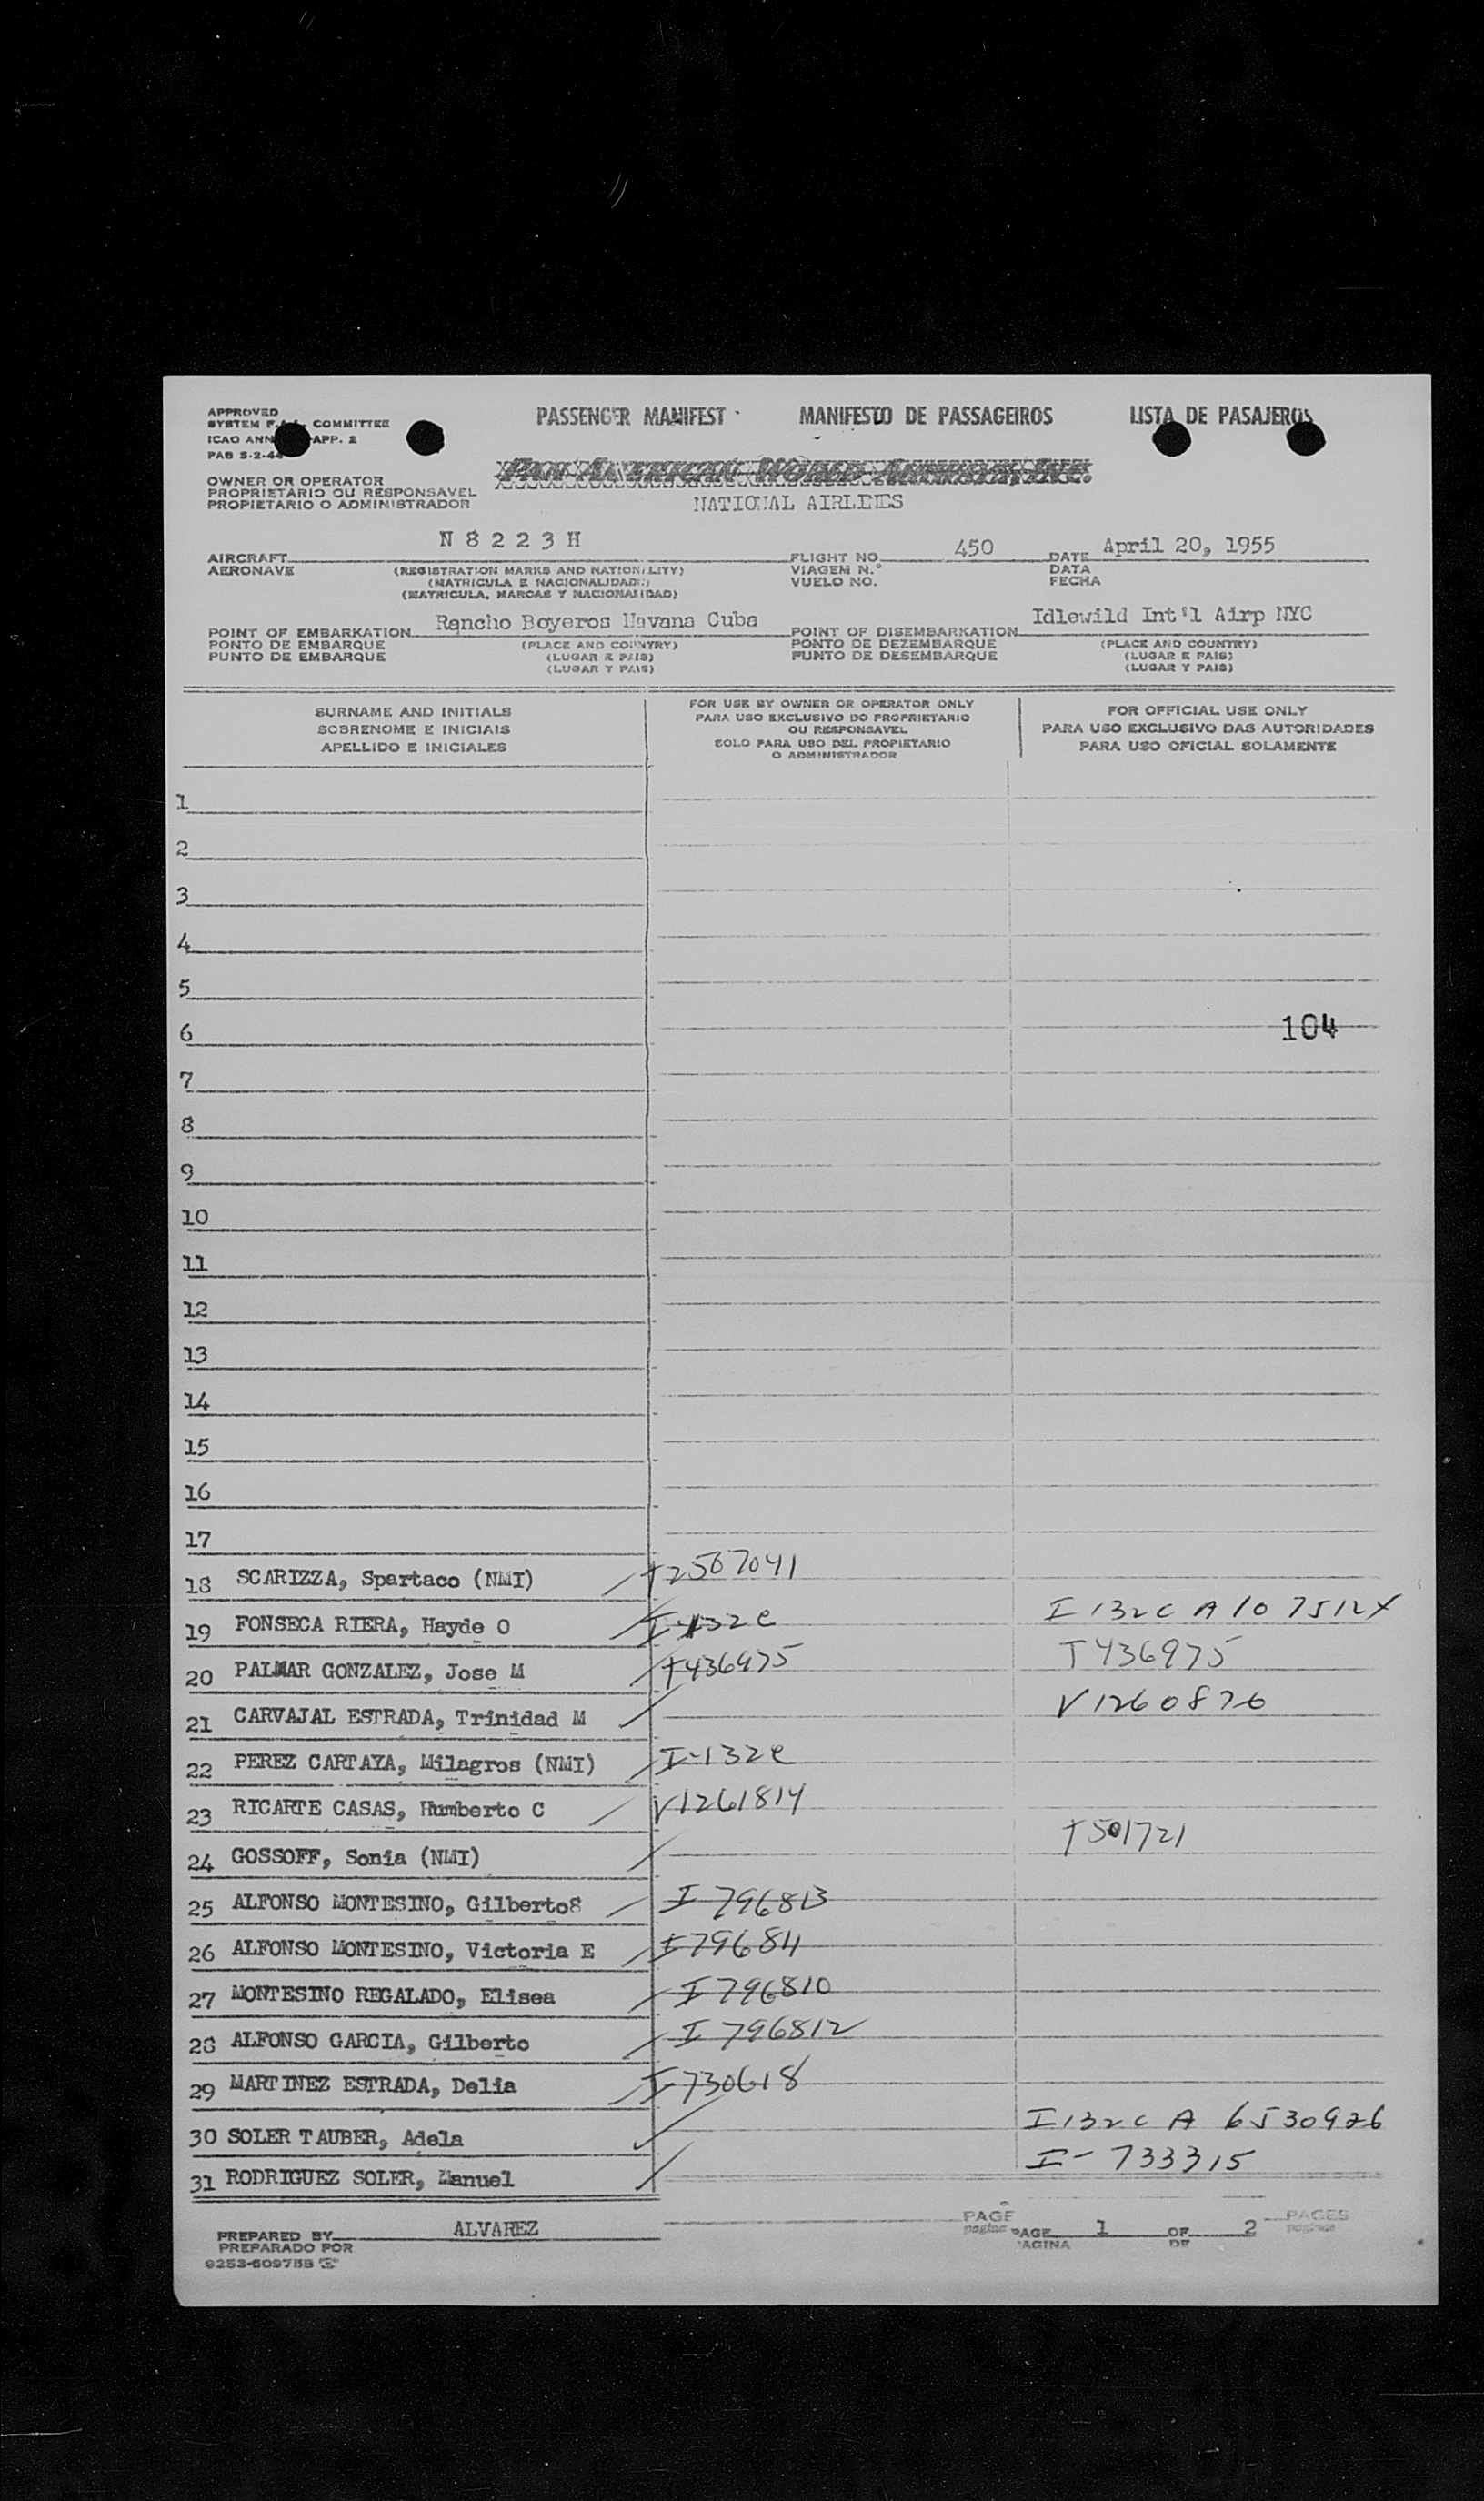 APPROVED
SYSTEM F.A.L. COMMITTEE
ICAO ANN APP. 2
PAB S-2-44
PASSENGER MANIFEST MANIFESTO DE PASSAGEIROS LISTA DE PASAJEROS
PAN AMERICAN WORLD AIRWAYS, INC.
OWNER OR OPERATOR
PROPRIETARIO OU RESPONSAVEL
PROPIETARIO O ADMINISTRADOR
NATIONAL AIRLINES
AIRCRAFT N 8 2 2 3 H FLIGHT NO. 450 DATE April 20, 1955
AERONAVE (REGISTRATION MARKS AND NATIONALITY) VIAGEM N.° DATA
(MATRICULA E NACIONALIDADE) VUELO NO. FECHA
(MATRICULA, MARCAS Y NACIONALIDAD)
POINT OF EMBARKATION Rancho Boyeros Havana Cuba POINT OF DISEMBARKATION Idlewild Int'l Airp NYC
PONTO DE EMBARQUE (PLACE AND COUNTRY) PONTO DE DEZEMBARQUE (PLACE AND COUNTRY)
PUNTO DE EMBARQUE (LUGAR E PAIS) PUNTO DE DESEMBARQUE (LUGAR E PAIS)
(LUGAR Y PAIS) (LUGAR Y PAIS)
SURNAME AND INITIALS
SOBRENOME E INICIAIS
APELLIDO E INICIALES
FOR USE BY OWNER OR OPERATOR ONLY
PARA USO EXCLUSIVO DO PROPRIETARIO
OU RESPONSAVEL
SOLO PARA USO DEL PROPIETARIO
O ADMINISTRADOR
FOR OFFICIAL USE ONLY
PARA USO EXCLUSIVO DAS AUTORIDADES
PARA USO OFICIAL SOLAMENTE
1
2
3
4
5
6 104
7
8
9
10
11
12
13
14
15
16
17
18 SCARIZZA, Spartaco (NMI) T2507041
19 FONSECA RIERA, Hayde O I-132e I 132C A 10 7512X
20 PALMAR GONZALEZ, Jose M T436975 T436975
21 CARVAJAL ESTRADA, Trinidad M V1260876
22 PEREZ CARTAYA, Milagros (NMI) I-132e
23 RICARTE CASAS, Humberto C V1261814
24 GOSSOFF, Sonia (NMI) T501721
25 ALFONSO MONTESINO, Gilberto8 I 796813
26 ALFONSO MONTESINO, Victoria E I796811
27 MONTESINO REGALADO, Elisea I 796810
28 ALFONSO GARCIA, Gilberto I 796812
29 MARTINEZ ESTRADA, Delia I-730618
30 SOLER TAUBER, Adela I132C A 6530926
31 RODRIGUEZ SOLER, Manuel I-733315
PREPARED BY ALVAREZ
PREPARADO POR
9253-609758
PAGE PAGES
PAGE 1 OF 2
PAGINA DE